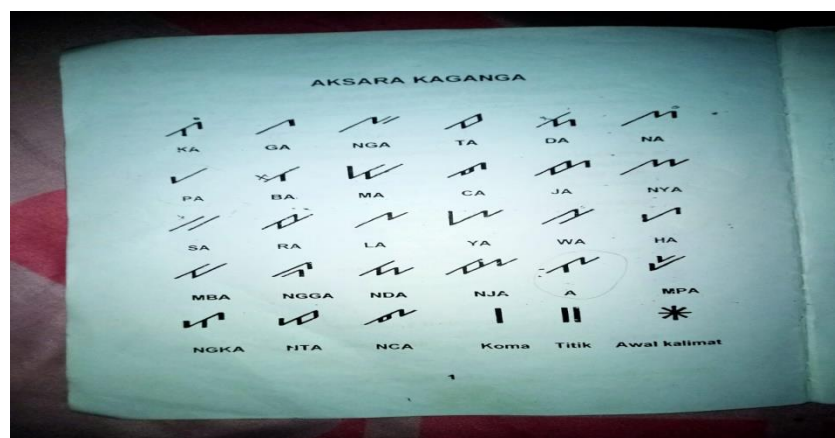 AKSARA KAGANGA
ꤰ ꤱ ꤲ ꤳ ꤴ ꤵ
KA GA NGA TA DA NA
ꤶ ꤷ ꤸ ꤹ ꤺ ꤻ
PA BA MA CA JA NYA
ꤼ ꤽ ꤾ ꤿ ꥀ ꥁ
SA RA LA YA WA HA
ꥂ ꥃ ꥄ ꥅ ꥆ
MBA NGGA NDA NJA A MPA
NGKA NTA NCA Koma Titik Awal kalimat
1